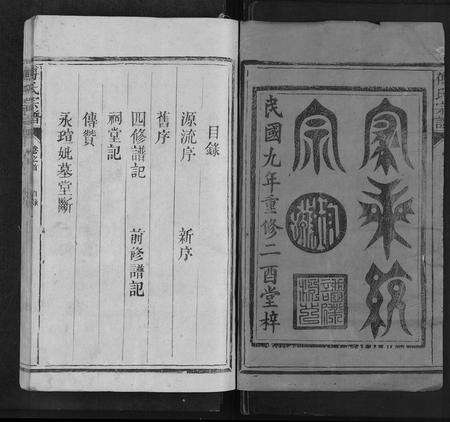 家乘統
宗
民國九年重修二酉堂梓
目錄
源流序 新序
舊序
四修譜記 前修譜記
祠堂記
傳贊
永瑄妣墓堂斷
氏宗譜 卷之首 目錄